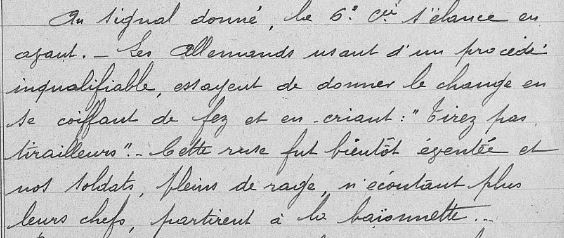 Au signal donné, la 6e Cie s'élance en
avant. _ Les Allemands usant d'un procédé
inqualifiable, essayent de donner le change en
se coiffant de fez et en criant : "Tirez pas
tirailleurs" _ Cette ruse fut bientôt éventée et
nos soldats, pleins de rage, n'écoutant plus
leurs chefs, partirent à la baïonnette _